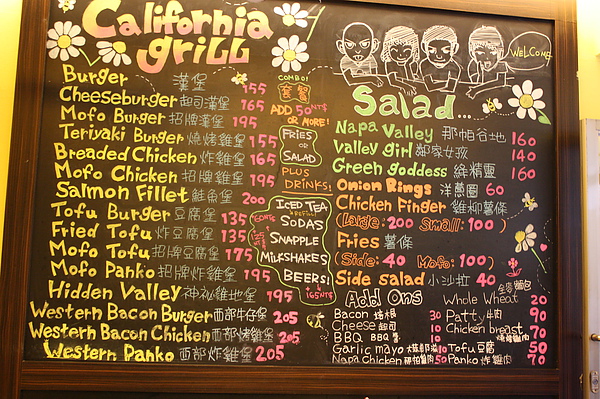 California
grill
Burger 漢堡 155
Cheeseburger 起司漢堡 165
Mofo Burger 招牌漢堡 195
Teriyaki Burger 燒烤雞堡 155
Breaded Chicken 炸雞堡 165
Mofo Chicken 招牌雞堡 195
Salmon Fillet 鮭魚堡 200
Tofu Burger 豆腐堡 135
Fried Tofu 炸豆腐堡 135
Mofo Tofu 招牌豆腐堡 175
Mofo Panko 招牌炸雞堡 195
Hidden Valley 神祕雞地堡 195
Western Bacon Burger 西部牛仔堡 205
Western Bacon Chicken 西部烤雞堡 205
Western Panko 西部炸雞堡 205
COMBO!
套餐
ADD 50 NT$
OR MORE!
FRIES
OR
SALAD
PLUS
DRINKS!
ICED TEA
REFILL!
SODAS
SNAPPLE
MILKSHAKES
BEERS!
WELCOME
Salad...
Napa Valley 那帕谷地 160
Valley girl 鄰家女孩 140
Green goddess 綠精靈 160
Onion Rings 洋蔥圈 60
Chicken Finger 雞柳薯條
(Large: 200 Small: 100)
Fries 薯條
(Side: 40 Mofo: 100)
Side salad 小沙拉 40
Add Ons
Bacon 培根 30
Cheese 起司 10
BBQ BBQ醬 10
Garlic mayo 10
Napa Chicken 50
全麥麵包
Whole Wheat 20
Patty 牛肉 90
Chicken breast 70
燒烤雞肉
Tofu 豆腐 50
Panko 炸雞肉 70